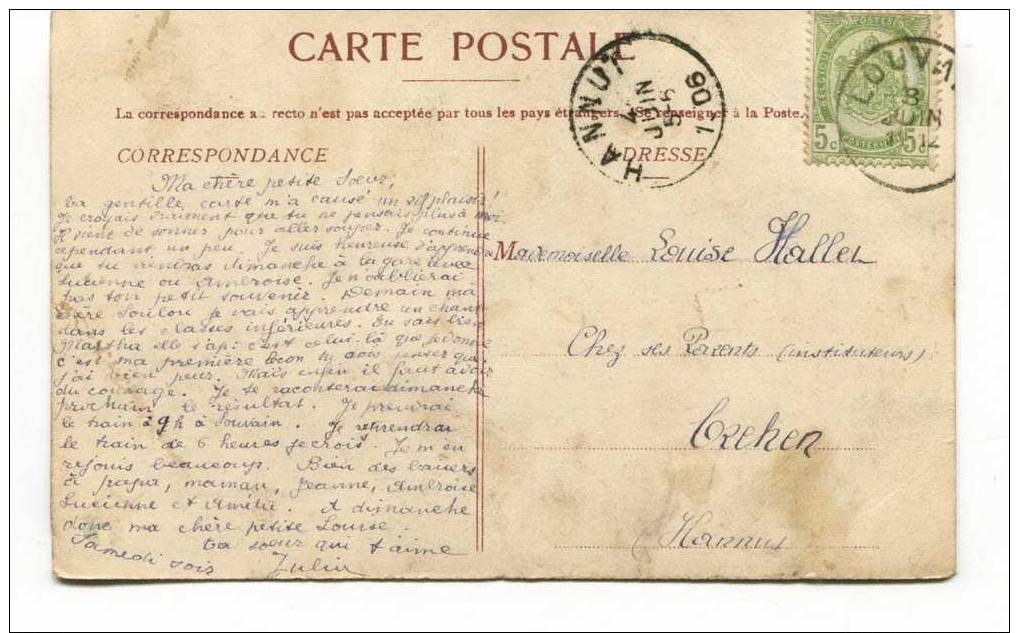 CARTE POSTALE
La correspondance au recto n'est pas acceptée par tous les pays étrangers. (Se renseigner à la Poste.)
HANNUT
4
JUIN
5-6
1906
POSTES
5c 5
LOUV
8
JUIN
12
CORRESPONDANCE
ADRESSE
Ma chère petite Soeur,
ta gentille carte m'a causé un vif plaisir!
Je croyais vraiment que tu ne pensais plus à moi.
Il vient de sonner pour aller souper. Je continue
cependant un peu. Je suis heureuse d'apprendre
que tu viendras dimanche à la gare avec
Lucienne ou Ambroise. Je n'oublierai
pas ton petit souvenir. Demain ma
chère Loulou je vais apprendre un chant
dans les classes inférieures. Tu sais bien
Martha elle s'ap: c'est celui-là que je donne
c'est ma première leçon tu dois penser que
j'ai bien peur. Mais enfin il faut avoir
du courage. Je te raconterai dimanche
prochain le résultat. Je prendrai
le train à 9h à Louvain. Je reprendrai
le train de 6 heures je crois. Je m'en
réjouis beaucoup. Bien des baisers
à papa, maman, Jeanne, Ambroise
Lucienne et Amélie. A dimanche
donc ma chère petite Louise.
Ta soeur qui t'aime
Samedi soir
Mademoiselle Louise Hallet
Chez ses Parents (instituteurs)
Crehen
Hannut